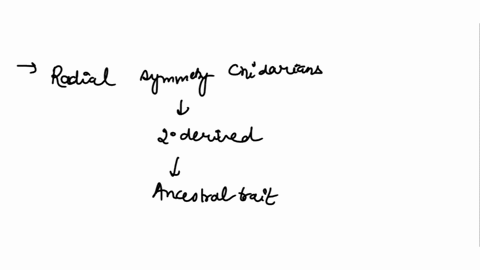 → Radial symmezy Cnidarians
↓
2° derived
↓
Ancestral trait